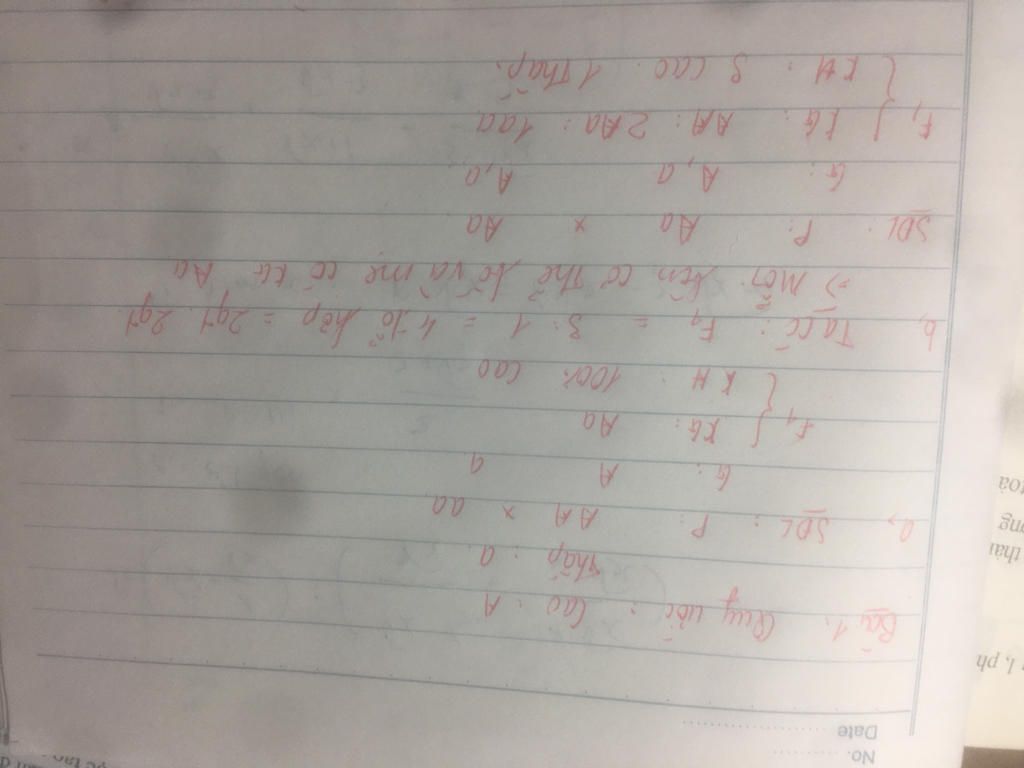 No.
Date
Bài 1. Quy ước: Cao: A
Thấp: a
a, SĐL: P: AA x aa
G: A a
F1 { KG: Aa
KH: 100% cao
b, Ta có: F1 = 3:1 = 4 tổ hợp = 2gt. 2gt
=> Mỗi bên cơ thể bố và mẹ có KG Aa
SĐL. P: Aa x Aa
G: A, a A, a
F1 { KG: AA: 2Aa: 1aa
KH: 3 cao. 1 thấp.
1, ph
thai
toà